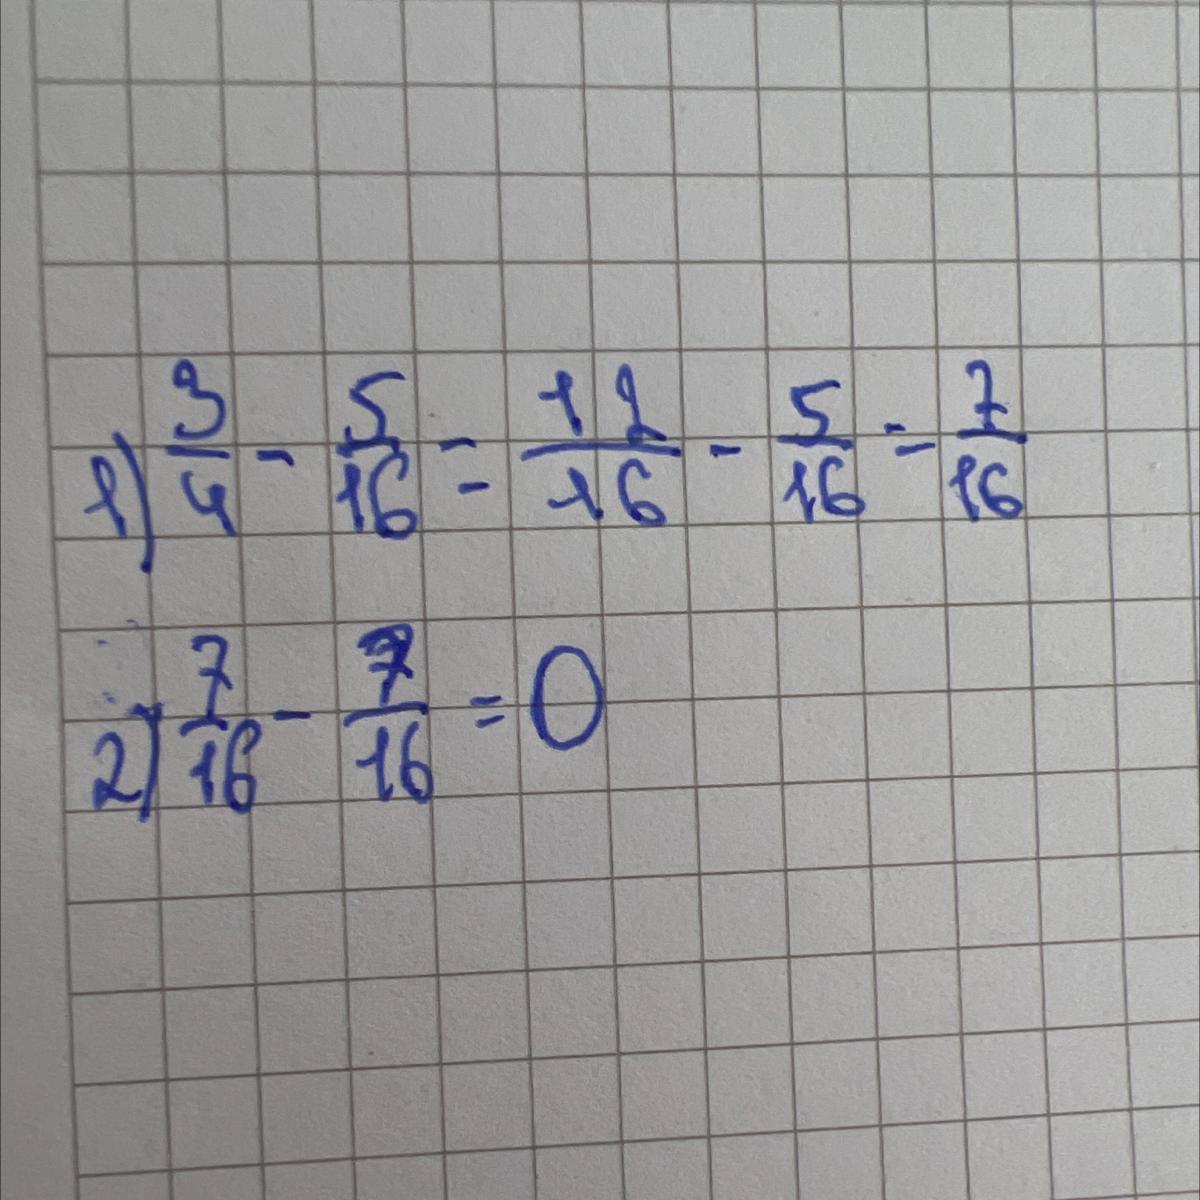 1) 3/4 - 5/16 = 12/16 - 5/16 = 7/16
2) 7/16 - 7/16 = 0